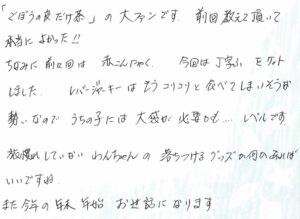 「ごぼうの皮だけ茶」の大ファンです。前回教えて頂いて
本当によかった!!
ちなみに前回は赤こんにゃく、今回は丁字ふをゲット
しました。レバージャーキーはもうコリコリと食べてしまいそうな
勢いなのでうちの子には大袋が必要かも…。レベルです。
旅慣れしていないわんちゃんの落ちつけるグッズが何かあれば
いいですね
また今年の年末年始お世話になります